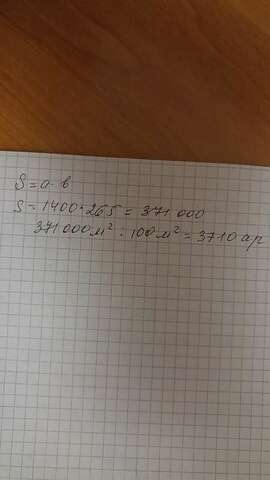 S = a · b
S = 1400 · 265 = 371 000
371 000 м² : 100 м² = 3710 ар